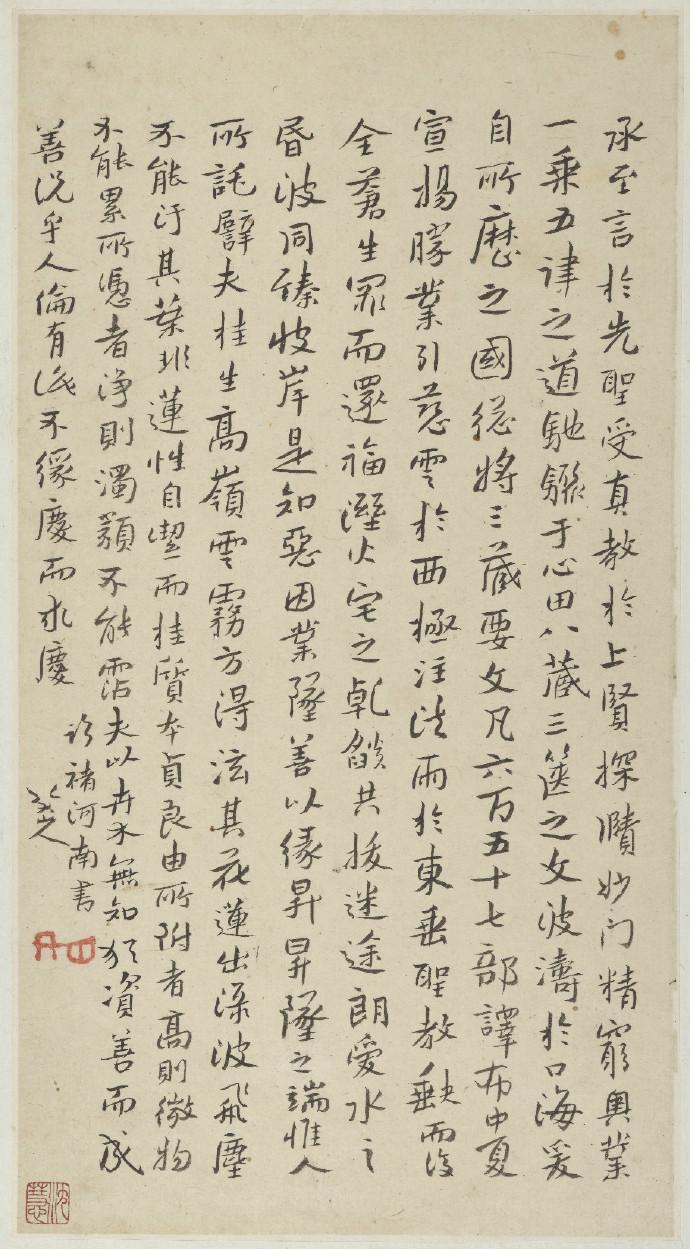 承至言於先聖受真教於上賢探賾妙門精窮奧業
一乘五律之道馳驟于心田八藏三篋之文波濤於口海爰
自所歷之國總將三藏要文凡六百五十七部譯布中夏
宣揚勝業引慈雲於西極注法雨於東垂聖教缺而復
全蒼生罪而還福溼火宅之乾燄共拔迷途朗愛水之
昏波同臻彼岸是知惡因業墜善以緣昇昇墜之端惟人
所託譬夫桂生高嶺雲霧方得泫其花蓮出淥波飛塵
不能汙其葉非蓮性自潔而桂質本貞良由所附者高則微物
不能累所憑者淨則濁類不能霑夫以卉木無知猶資善而成
善況乎人倫有識不緣慶而求慶
臨褚河南書
八大山人